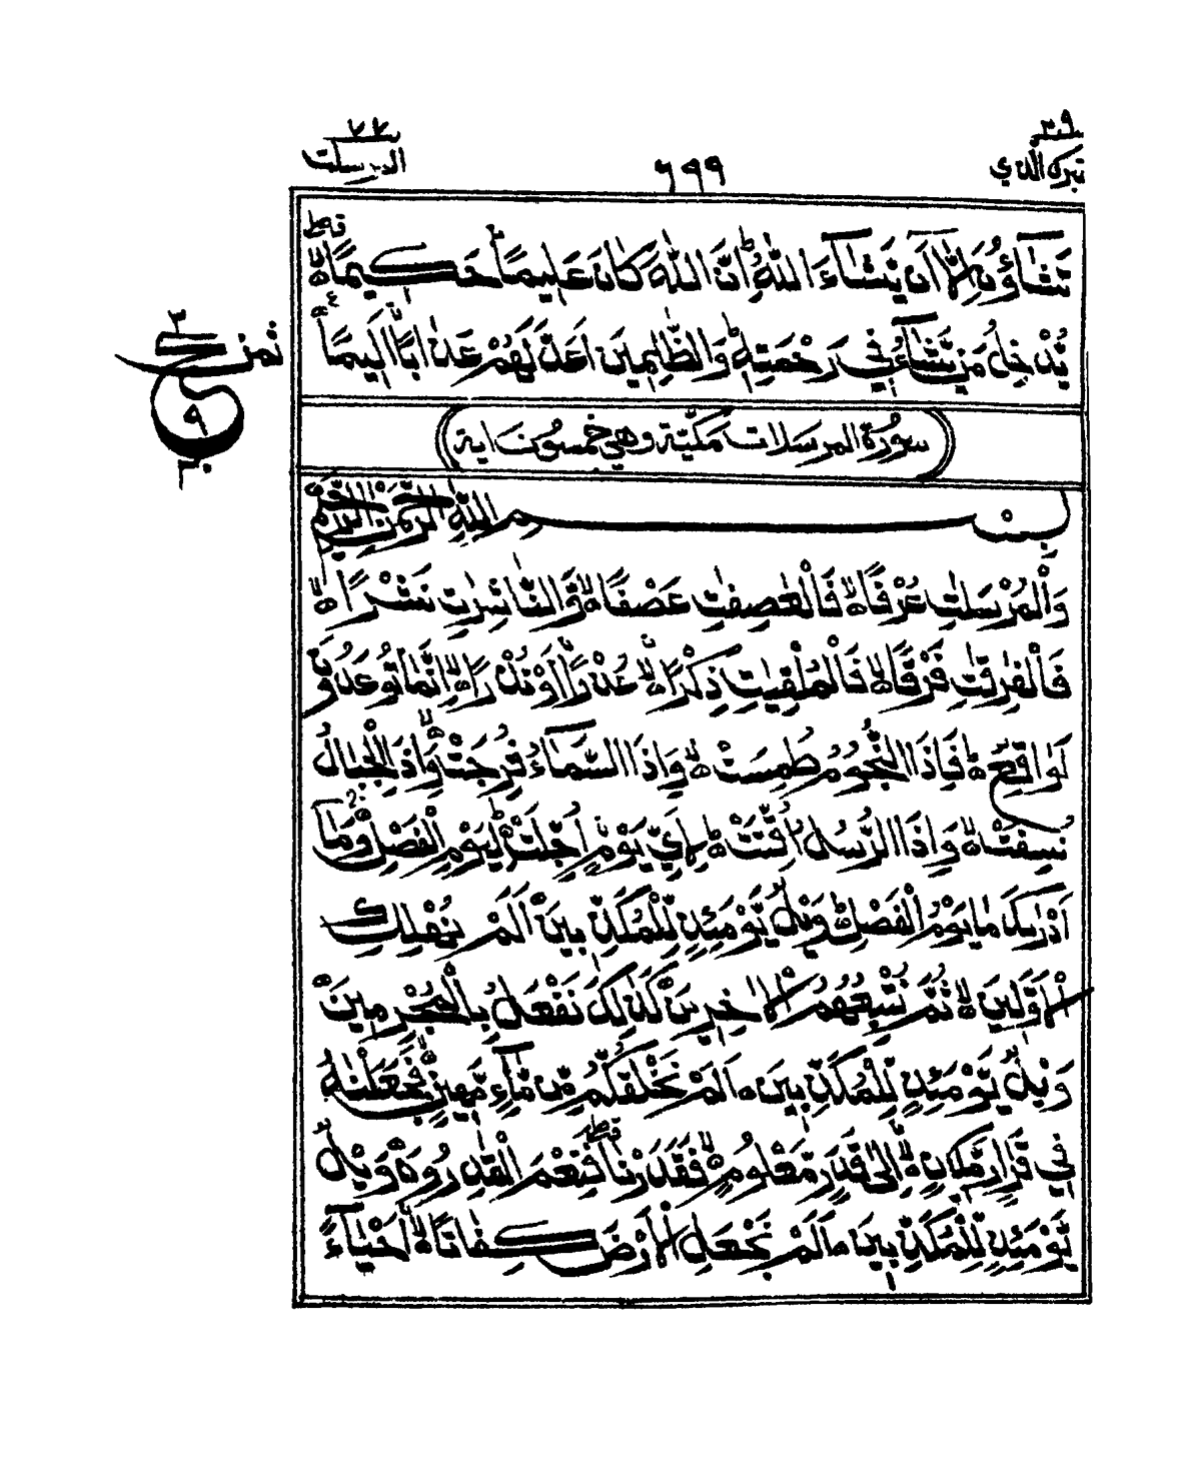 ٢٩
تبرك الذي
٦٩٩
٧٧
المرسلت
تَشَآؤُنَ اِلَّآ اَنْ يَّشَآءَ اللّٰهُ ؕ اِنَّ اللّٰهَ كَانَ عَلِيمًا حَكِيمًا ۙ قط
يُّدْخِلُ مَنْ يَّشَآءُ فِي رَحْمَتِهٖ ؕ وَالظّٰلِمِينَ اَعَدَّ لَهُمْ عَذَابًا اَلِيمًا ع
ثمن
٣
ع
٩
٢٠
سورة المرسلات مكيّة وهي خمسون اية
بِسْمِ اللّٰهِ الرَّحْمٰنِ الرَّحِيمِ
وَالْمُرْسَلٰتِ عُرْفًا ۙ فَالْعٰصِفٰتِ عَصْفًا ۙ وَّالنّٰشِرٰتِ نَشْرًا ۙ
فَالْفٰرِقٰتِ فَرْقًا ۙ فَالْمُلْقِيٰتِ ذِكْرًا ۙ عُذْرًا اَوْ نُذْرًا ۙ اِنَّمَا تُوعَدُونَ
لَوَاقِعٌ ؕ فَاِذَا النُّجُومُ طُمِسَتْ ۙ وَاِذَا السَّمَآءُ فُرِجَتْ ۙ وَاِذَا الْجِبَالُ
نُسِفَتْ ۙ وَاِذَا الرُّسُلُ اُقِّتَتْ ؕ لِاَيِّ يَوْمٍ اُجِّلَتْ ؕ لِيَوْمِ الْفَصْلِ ۚ وَمَآ
اَدْرٰىكَ مَا يَوْمُ الْفَصْلِ ؕ وَيْلٌ يَّوْمَئِذٍ لِّلْمُكَذِّبِينَ اَلَمْ نُهْلِكِ
الْاَوَّلِينَ ؕ ثُمَّ نُتْبِعُهُمُ الْاٰخِرِينَ كَذٰلِكَ نَفْعَلُ بِالْمُجْرِمِينَ
وَيْلٌ يَّوْمَئِذٍ لِّلْمُكَذِّبِينَ اَلَمْ نَخْلُقْكُّمْ مِّنْ مَّآءٍ مَّهِينٍ ۙ فَجَعَلْنٰهُ
فِي قَرَارٍ مَّكِينٍ ۙ اِلٰى قَدَرٍ مَّعْلُومٍ ۙ فَقَدَرْنَا قط فَنِعْمَ الْقٰدِرُونَ وَيْلٌ
يَّوْمَئِذٍ لِّلْمُكَذِّبِينَ اَلَمْ نَجْعَلِ الْاَرْضَ كِفَاتًا ۙ اَحْيَآءً